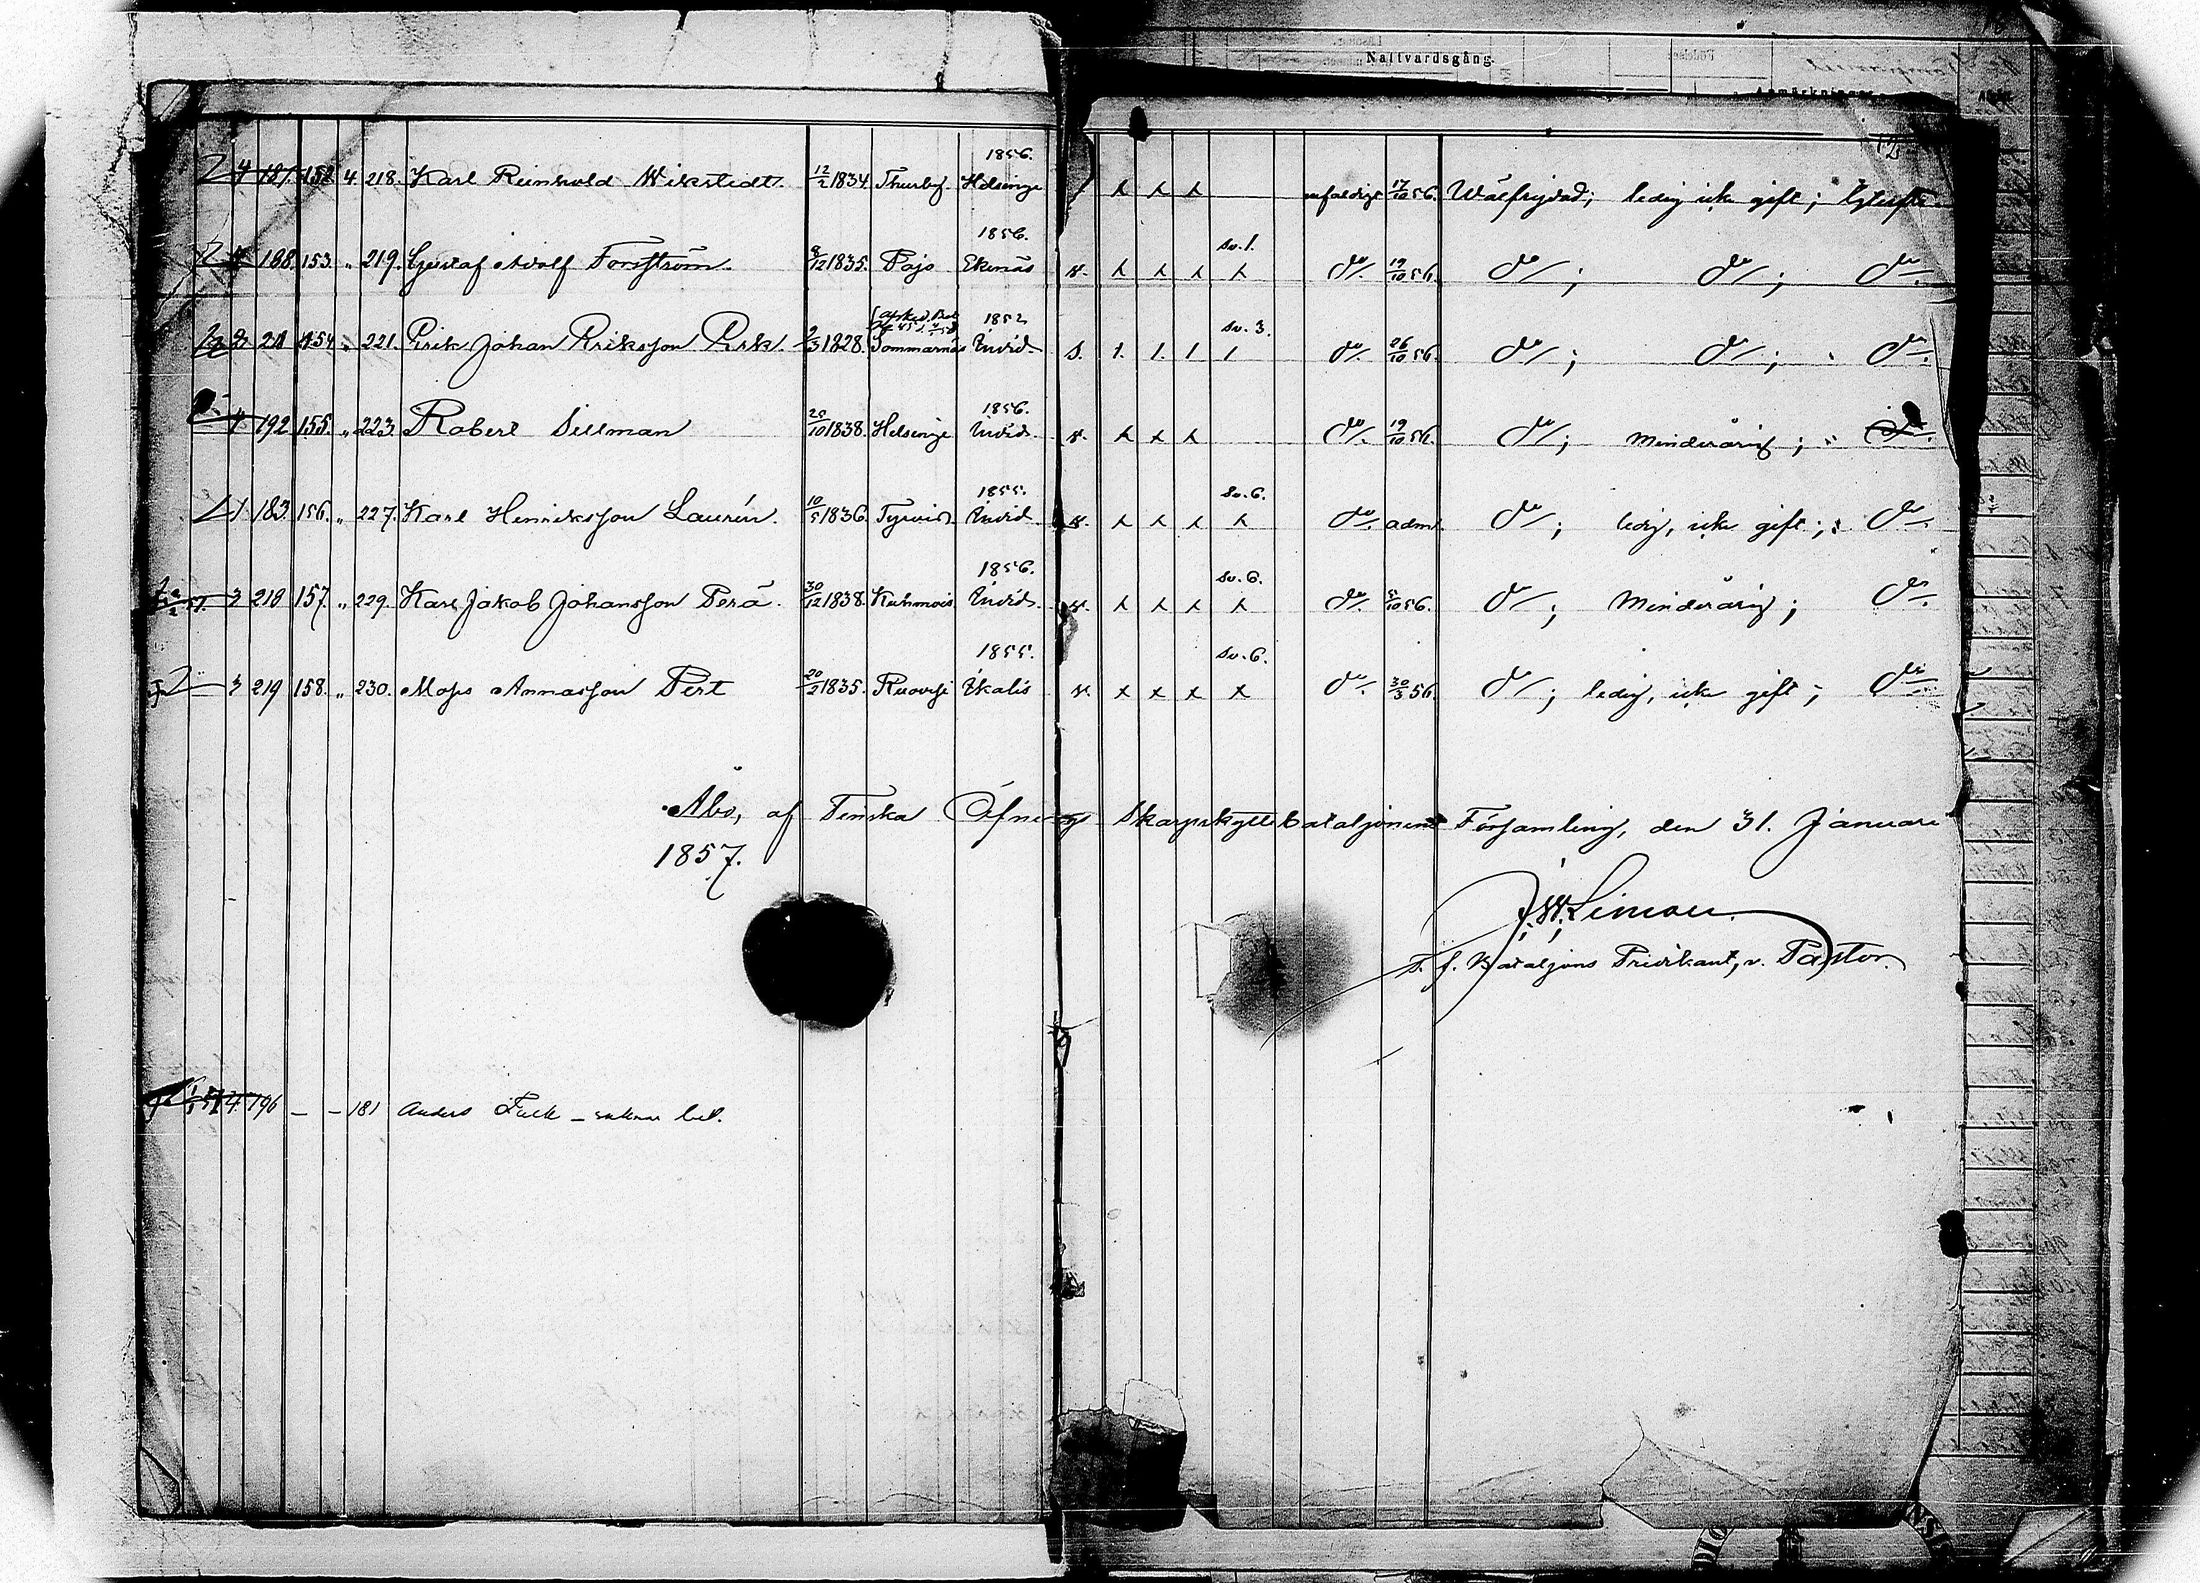 Nattvardsgång.
Anmärkningar
12
4 187. 152 4 218. Karl Reinhold Wikstedt. 12/2 1834 Thurby 1856. Helsinge x x x 17/10 56. Wälfrejdad; ledig icke gift;
4 188. 153. " 219. Gustaf Adolf Forsström. 9/12 1835. Pojo 1856. Ekenäs v. x x x sv. 1. x do 19/10 56. do; do; do
3 211 154 " 221. Erik Johan Eriksson Perk. 2/3 1828. Sommarnäs 1852 s. 1. 1. 1 sv. 3. 1 do 26/10 56. do; do; do
4 192 155. " 223. Robert Sillman 25/10 1838. Helsinge 1856. v. x x x do 19/10 56. do; minderårig; do
1 183. 156. " 227. Karl Henriksson Laurén. 10/5 1836 Tyrvis 1855. v. x x x sv. 6. x do adm. do; ledig, icke gift; do
3 218 157. " 229. Karl Jakob Johansson Perä. 30/12 1838. Kuhmois 1856. v. x x x sv. 6. x do 5/10 56. do; Minderårig; do
3 219 158. " 230. Moses Annasson Pert 20/2 1835. Ruovesi 1855. Ikalis v. x x x sv. 6. x do 30/3 56. do; ledig, icke gift; do
Åbo, af Finska Öfnings Skarpskyttebataljonens Församling, den 31. Januari
1857.
Bataljons Predikant, v. Pastor.
4. 196 — — 181 Anders Falk — saknar bet.